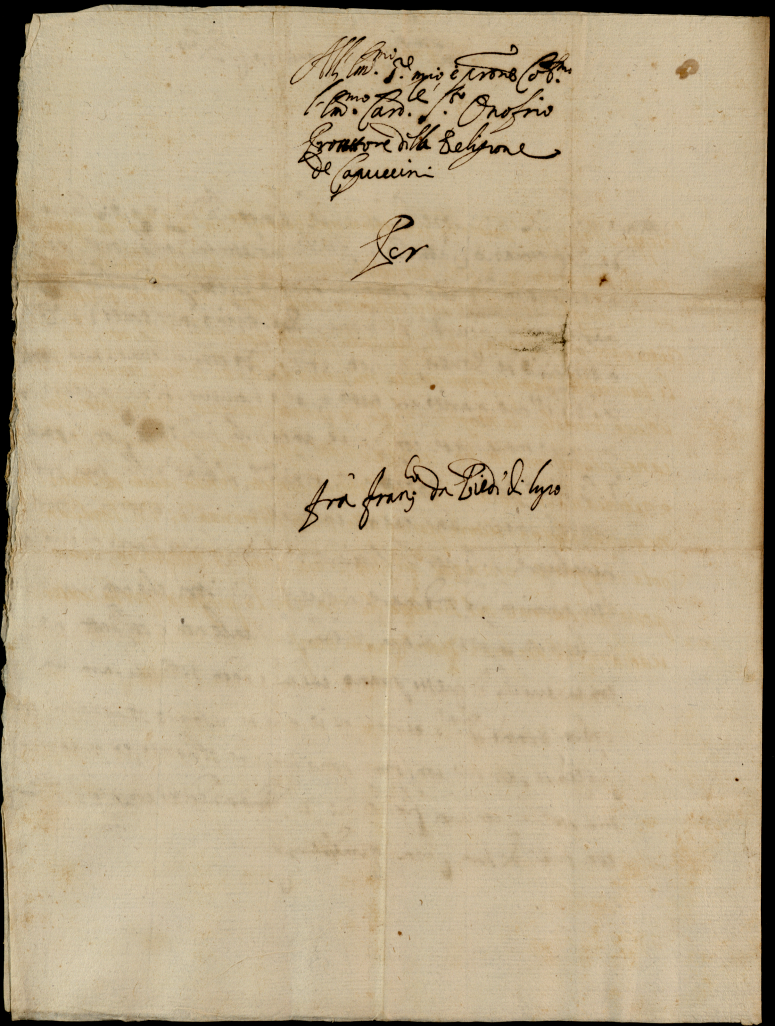 All' Em.mo S.re mio e prone Col.mo
l'Em.mo Card.le S.to Onofrio
Protettore della Religione
de Capuccini
Per
frà Fran.co da Piedi di